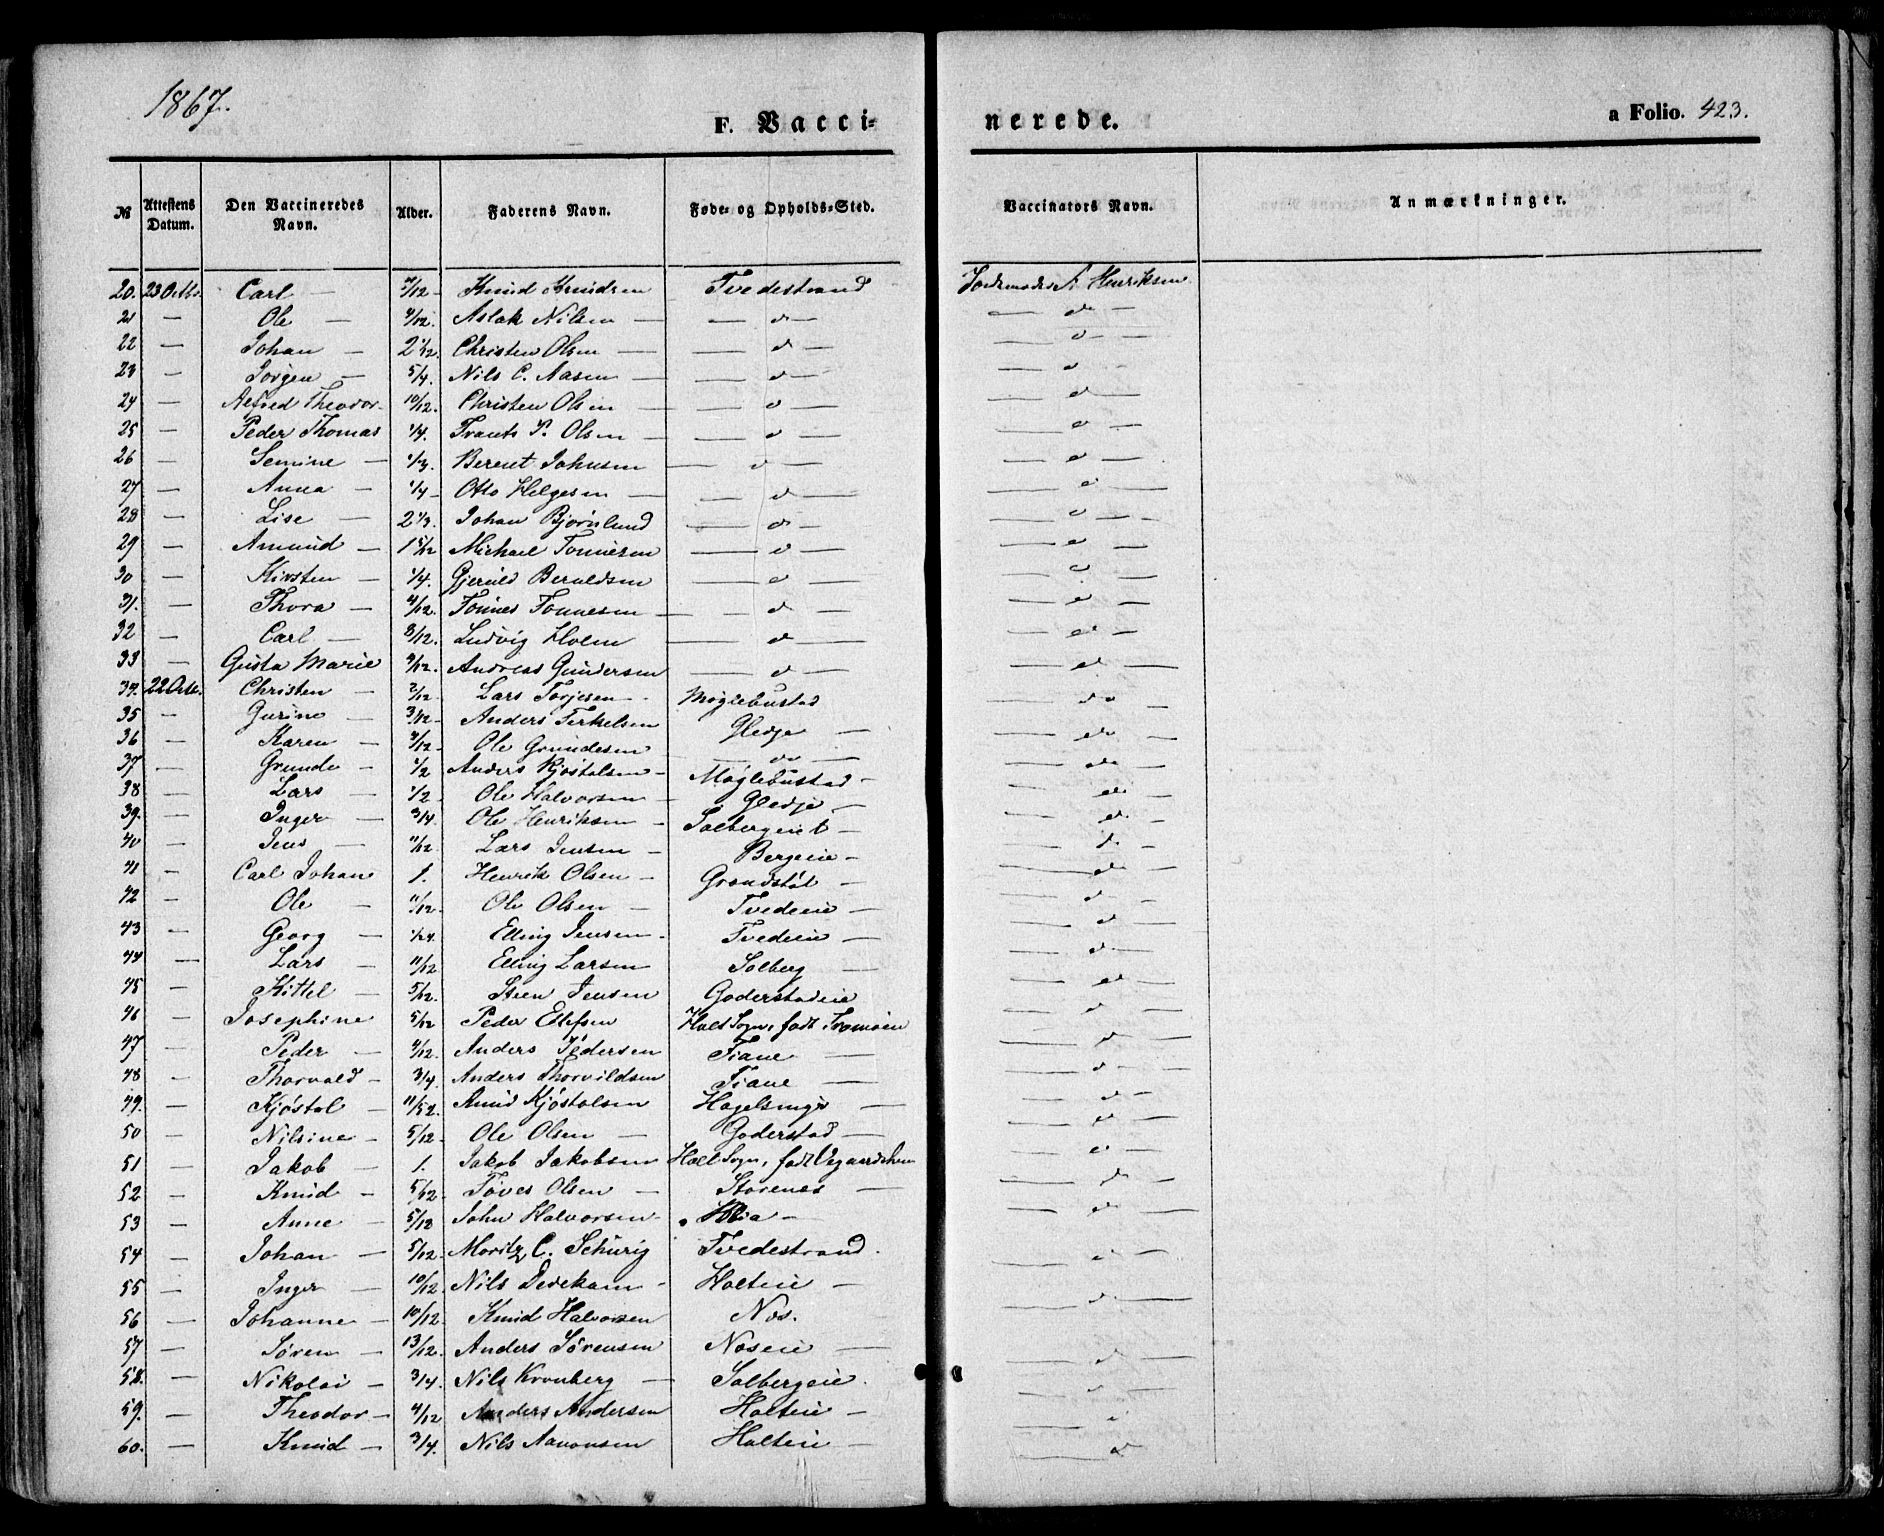 1867.
F. Vacci-
nerede.
a Folio. 423.
№ Attestens Datum. Den Vaccineredes Navn. Alder. Faderens Navn. Føde- og Opholds-Sted. Vaccinators Navn. Anmærkninger.
20. 23 Octbr. Carl — 7/12 — Knud Knudsen Tvedestrand Jordemoder A. Henriksen
21 — Ole — 4/12. Aslak Nilsen — — d — — d —
22 — Johan — 2 1/12. Christen Olsen — — d — — d —
23 — Jørgen — 5/4. Nils C. Aasen — — d — — d —
24 — Alfred Theodor — 10/12. Christen Olsen — — d — — d —
25 — Peder Thomas 1/4. Frants P. Olsen — — d — — d —
26 — Semine — 1/3. Berent Johnsen — d — — d —
27 — Anna — 1/4 — Otto Helgesen — — d — — d —
28 — Lise — 2 1/3. Johan Bjørnlund — d — — d —
29 — Amund — 1 5/12 Michael Tønnesen — d — — d —
30 — Kirsten — 1/4. Gjeruld Beruldsen — d — — d —
31. — Thora — 4/12. Tønnes Tønnesen — — d — — d —
32 — Carl — 8/12. Ludvig Holm — d — — d —
33 — Gusta Marie 4/12. Andreas Gundersen — d — — d —
34. 22 Octb. Christen — 2/12 Lars Torjesen — Møglebustad — d —
35 — Gurine — 3/12 — Anders Terkelsen Gledje — — d —
36 — Karen — 3/12 — Ole Grundesen — do — — do —
37 — Grunde — 1/2 Anders Kjøstolsen — Møglebustad — — do —
38 — Lars — 1/2 Ole Halvorsen — Gledje — — d —
39. — Inger — 3/4. Ole Henriksen — Solbergeiet — — d —
40 — Jens — 11/12 Lars Jensen — Bergeie — — d —
41 — Carl Johan 1. Henrik Olsen — Grandstøl — — d —
42 — Ole — 11/12 Ole Olsen — Tvedeeie — — d —
43 — Georg — 1/24. Elling Jensen — Tvedeie — — d —
44 — Lars — 11/12 Elling Larsen Solberg — — d —
45 — Kittel — 5/12. Steen Jensen Goderstadeie — d —
46 — Josephine 5/12 Peder Ellefsen Holt Sogn, født Tromøen — d —
47 — Peder — 4/12. Anders Pedersen Fiane — — d —
48 — Thorvald — 3/4. Anders Thorvildsen Fiane — — d —
49. — Kjøstol — 11/52. Amund Kjøstolsen Hagelsmyr — — d —
50 — Nilsine — 5/12. Ole Olsen — Goderstad — — d —
51 — Jakob — 1. Jakob Jakobsen Holt Sogn, født Vegaardshen — d —
52 — Knud — 5/12. Toves Olsen — Storenes — — d —
53 — Anne — 5/12 John Halvorsen — Klia — — d —
54 — Johan — 5/12. Moritz C. Schürig Tvedestrand. — d —
55 — Inger — 10/12. Nils Dedekam — Holteie —
56 — Johanne — 10/12 Knud Halvorsen Nos. — d —
57 — Søren — 13/12. Anders Sørensen Noseie — — d —
58. — Nikolai — 3/4 Nils Kronberg — Solbergeie. — d —
59. — Theodor — 4/12 Anders Andersen Holteie — — d —
60. — Knud — 3/4. Nils Aanonsen Holteie — d